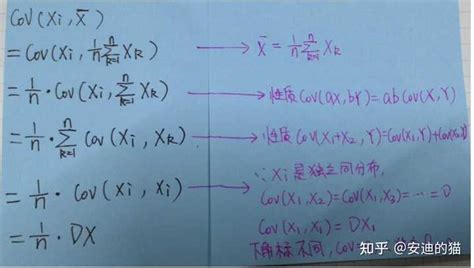 Cov(Xi, X̄)
= Cov(Xi, 1/n ∑_{k=1}^{n} X_k) → X̄ = 1/n ∑_{k=1}^{n} X_k
= 1/n · Cov(Xi, ∑_{k=1}^{n} X_k) → 性质 Cov(aX, bY) = ab Cov(X, Y)
= 1/n · ∑_{k=1}^{n} Cov(Xi, X_k) → 性质 Cov(X₁+X₂, Y) = Cov(X₁, Y) + Cov(X₂,Y)
= 1/n · Cov(Xi, Xi) → ∵ Xi 是独立同分布,
Cov(X₁, X₂) = Cov(X₁, X₃) = ··· = 0
= 1/n · DX
Cov(X₁, X₁) = DX₁
下角标不同, Cov
知乎 @安迪的猫